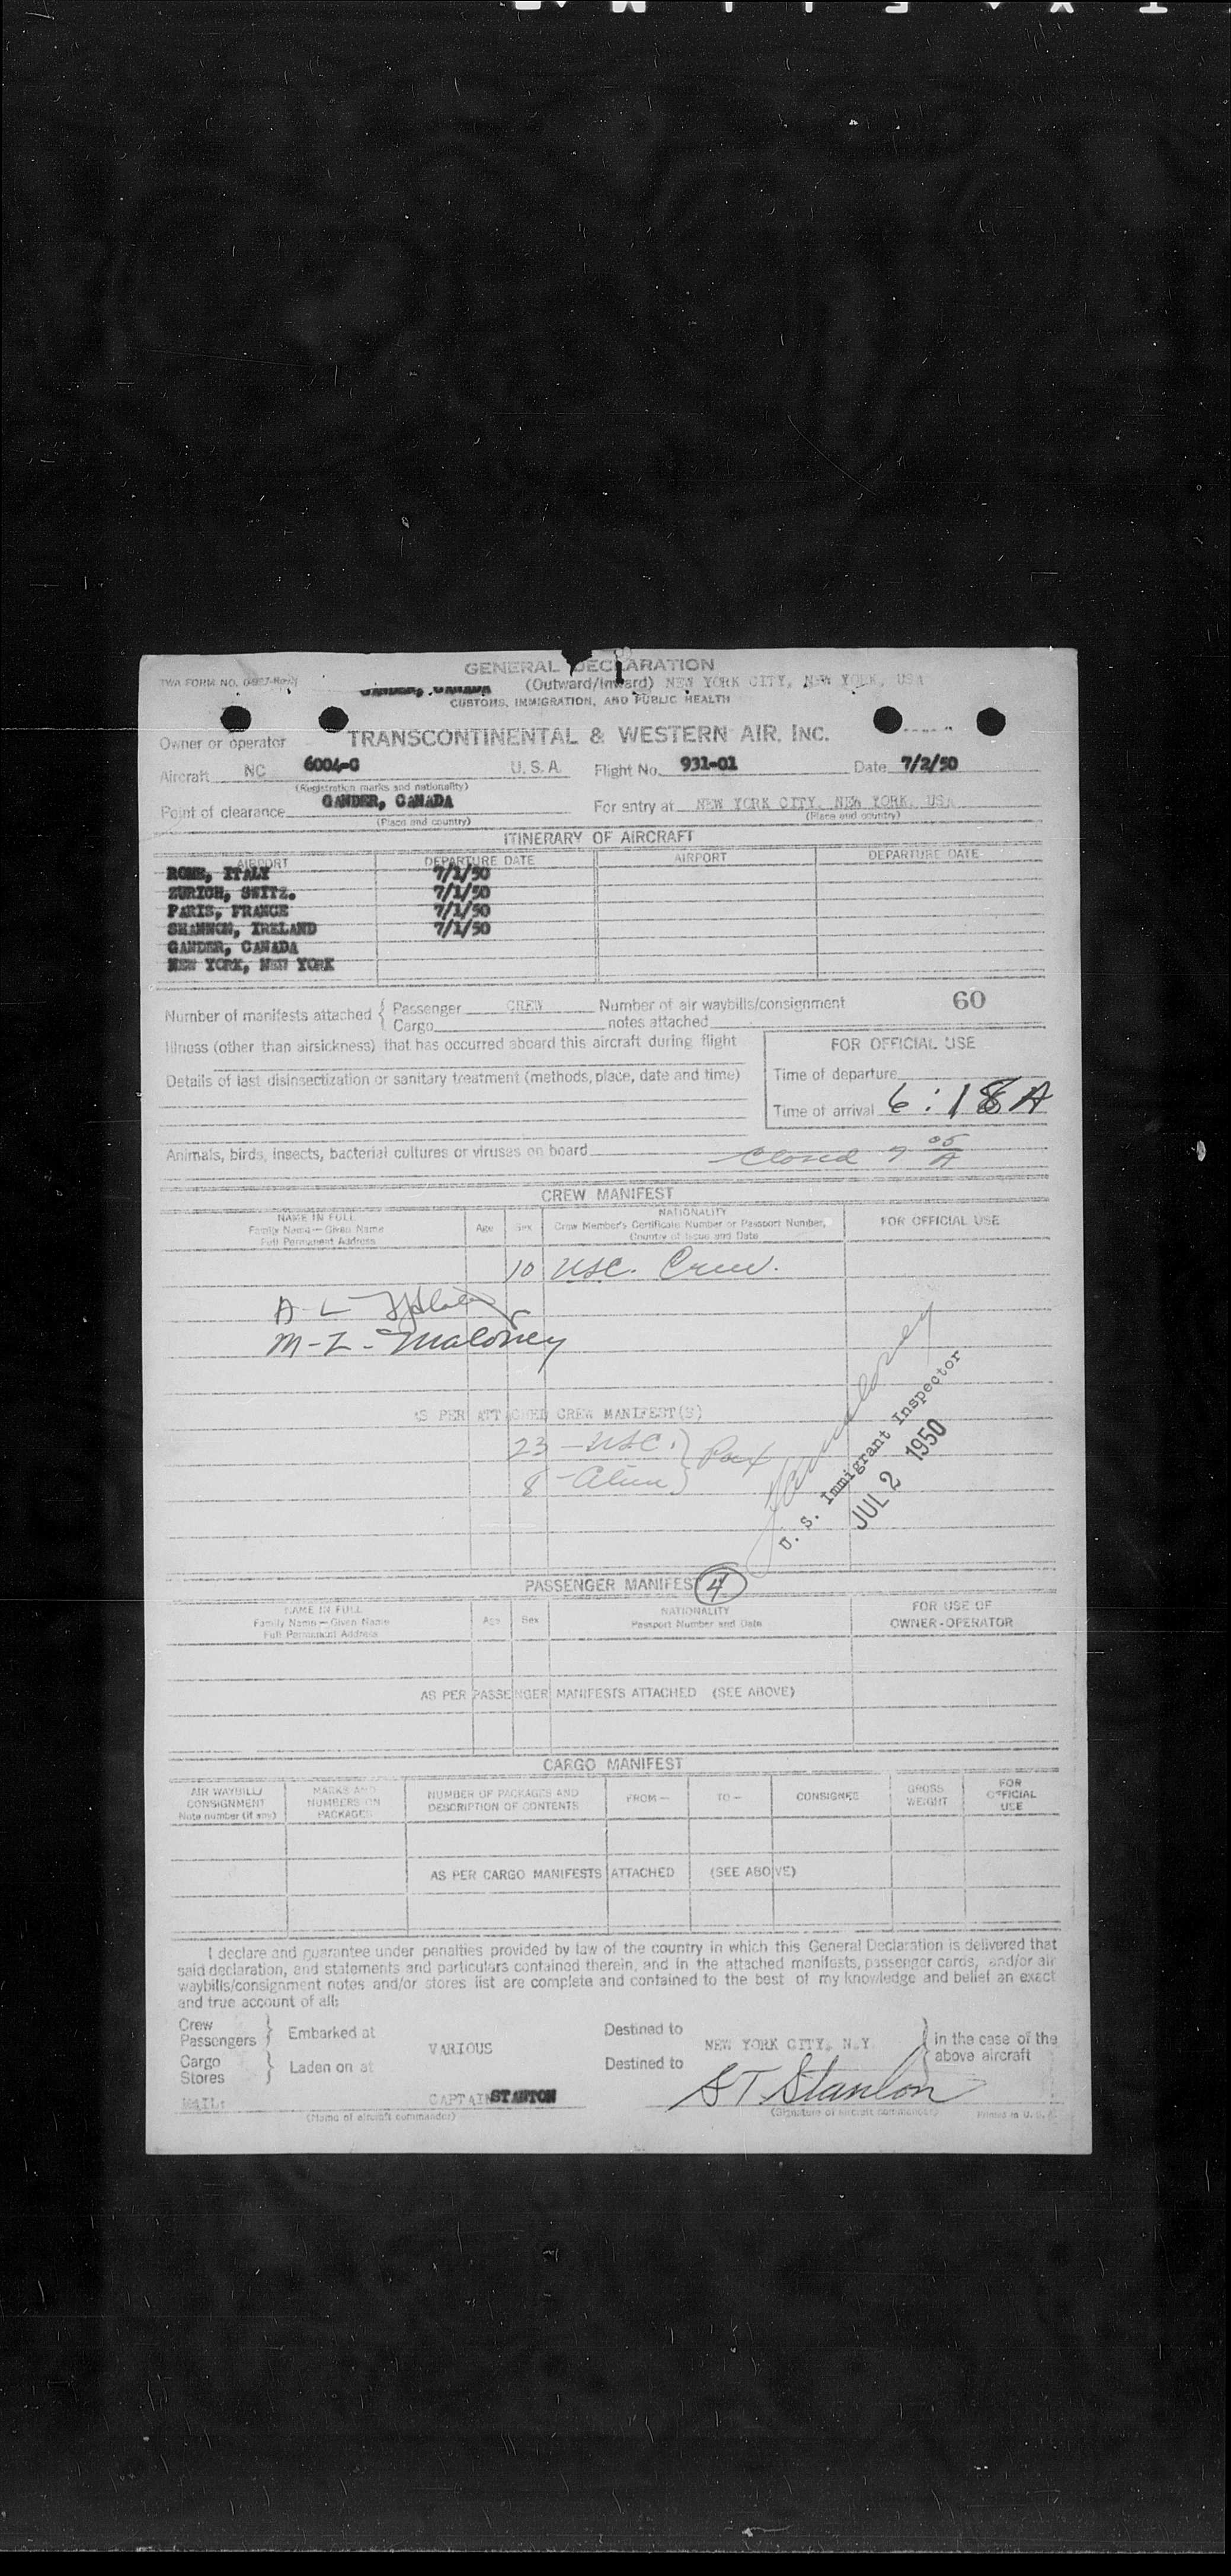 GENERAL DECLARATION
TWA FORM NO.
GANDER, CANADA (Outward/Inward) NEW YORK CITY, NEW YORK, USA
CUSTOMS, IMMIGRATION, AND PUBLIC HEALTH
Owner or operator TRANSCONTINENTAL & WESTERN AIR, INC.
Aircraft NC 6004-C U. S. A. Flight No. 931-01 Date 7/2/50
(Registration marks and nationality)
Point of clearance GANDER, CANADA For entry at NEW YORK CITY, NEW YORK, USA
(Place and country) (Place and country)
ITINERARY OF AIRCRAFT
AIRPORT DEPARTURE DATE AIRPORT DEPARTURE DATE
ROME, ITALY 7/1/50
ZURICH, SWITZ. 7/1/50
PARIS, FRANCE 7/1/50
SHANNON, IRELAND 7/1/50
GANDER, CANADA
NEW YORK, NEW YORK
Number of manifests attached { Passenger CREW Number of air waybills/consignment 60
Cargo notes attached
Illness (other than airsickness) that has occurred aboard this aircraft during flight
FOR OFFICIAL USE
Details of last disinsectization or sanitary treatment (methods, place, date and time)
Time of departure
Time of arrival 6:18 A
Animals, birds, insects, bacterial cultures or viruses on board
Closed 7 05 A
CREW MANIFEST
NAME IN FULL Age Sex NATIONALITY FOR OFFICIAL USE
Family Name—Given Name Crew Member's Certificate Number or Passport Number,
Full Permanent Address Country of Issue and Date
10 USC. Crew.
A - L
M - L - Maloney
AS PER ATTACHED CREW MANIFEST(S)
23 - USC. } Pax
8 - Alien }
U. S. Immigrant Inspector
JUL 2 1950
PASSENGER MANIFEST 4
NAME IN FULL Age Sex NATIONALITY FOR USE OF
Family Name—Given Name Passport Number and Date OWNER-OPERATOR
Full Permanent Address
AS PER PASSENGER MANIFESTS ATTACHED (SEE ABOVE)
CARGO MANIFEST
AIR WAYBILL/ MARKS AND NUMBER OF PACKAGES AND FROM— TO— CONSIGNEE GROSS FOR
CONSIGNMENT NUMBERS ON DESCRIPTION OF CONTENTS WEIGHT OFFICIAL
Note number (if any) PACKAGES USE
AS PER CARGO MANIFESTS ATTACHED (SEE ABOVE)
I declare and guarantee under penalties provided by law of the country in which this General Declaration is delivered that
said declaration, and statements and particulars contained therein, and in the attached manifests, passenger cards, and/or air
waybills/consignment notes and/or stores list are complete and contained to the best of my knowledge and belief an exact
and true account of all:
Crew
Passengers } Embarked at VARIOUS Destined to NEW YORK CITY, N.Y. } in the case of the
Cargo
Stores } Laden on at Destined to above aircraft
MAIL: CAPTAIN STANTON S T. Stanton
(Name of aircraft commander) (Signature of aircraft commander) Printed in U. S. A.